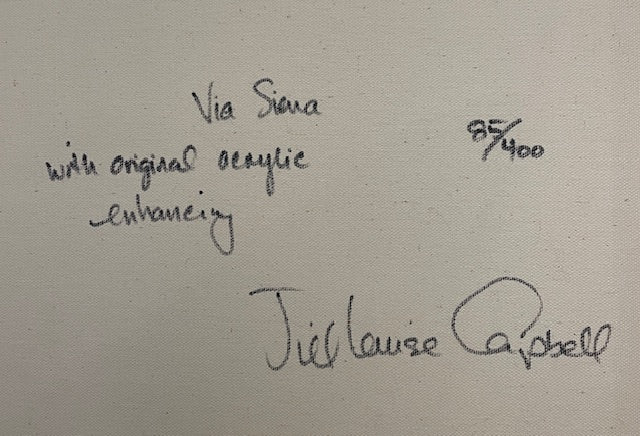 Via Siena
85/400
with original acrylic
enhancing
Jill Louise Campbell